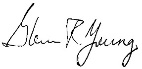 Glenn R Young